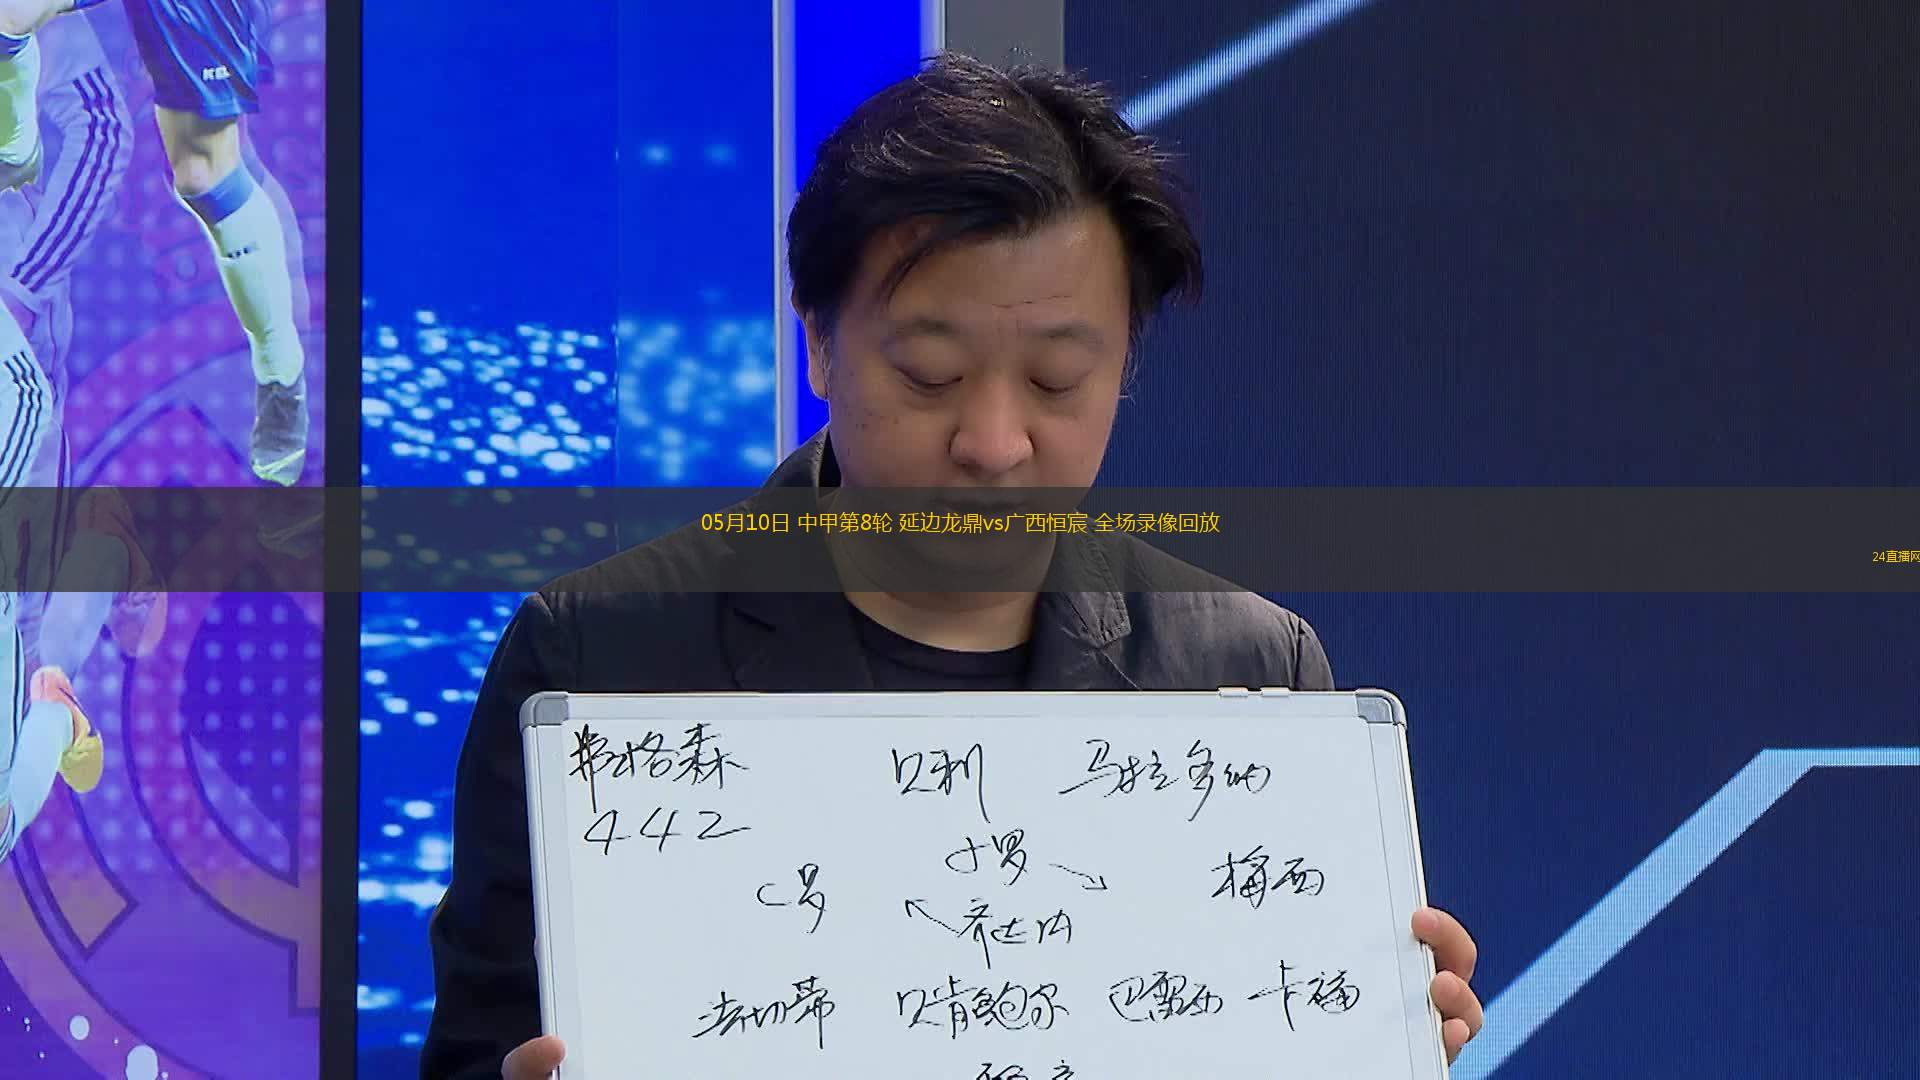 KEL
05月10日 中甲第8轮 延边龙鼎vs广西恒宸 全场录像回放
24直播网
弗格森 贝利 马拉多纳
442
小罗
C罗 梅西
齐达内
法切蒂 贝肯鲍尔 巴雷西 卡福